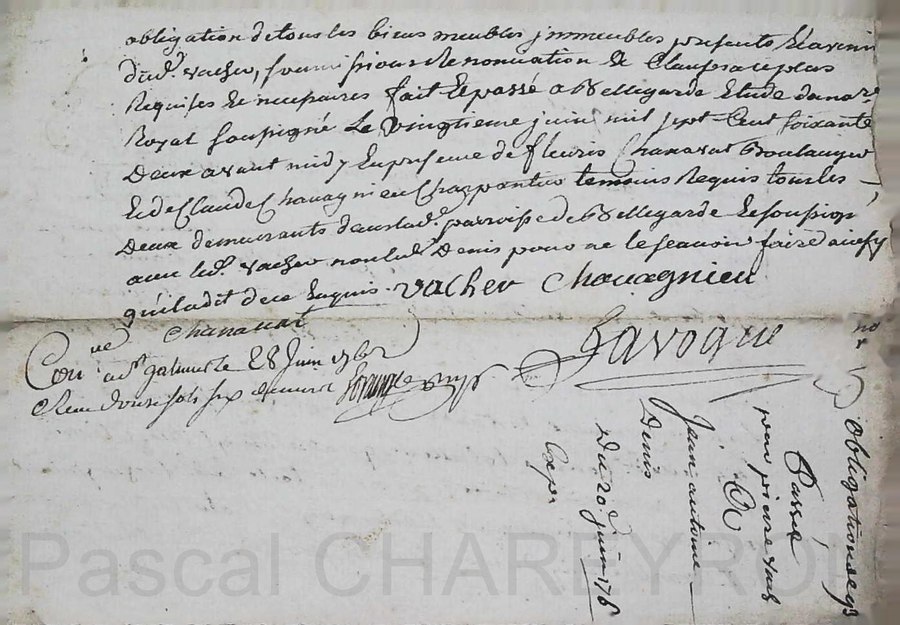 obligation de tous les biens meubles jmmeubles presents & avenir
dud.t vacher, soumissions Renonciation & Clauses a ce plus
Requises & necessaires fait & passé a Bellegarde Etude du no.re
Royal soussigné Le Vingtieme juin mil sept Cent soixante
Deux avant midy En presence de fleuris Chanavat Boulanger
& de Claude Chavagnieu Charpentier temoins Requis tous les
Deux demeurants dans lad.e parroisse de Bellegarde & soussignés
avec led.t vacher non led.t Denis pour ne le scavoir faire dainsy
qu'il a dit de ce Enquis. vacher Chavagnieu
Chanavat
Lavogue
Con.lle a St galmier le 28 Juin 1762
Reçu douze sols six deniers
Obligation de 93
Passée
par pierre vach
A
Jean antoine
Denis
Du 20 juin 176
Exp.
Pascal CHAREYRON